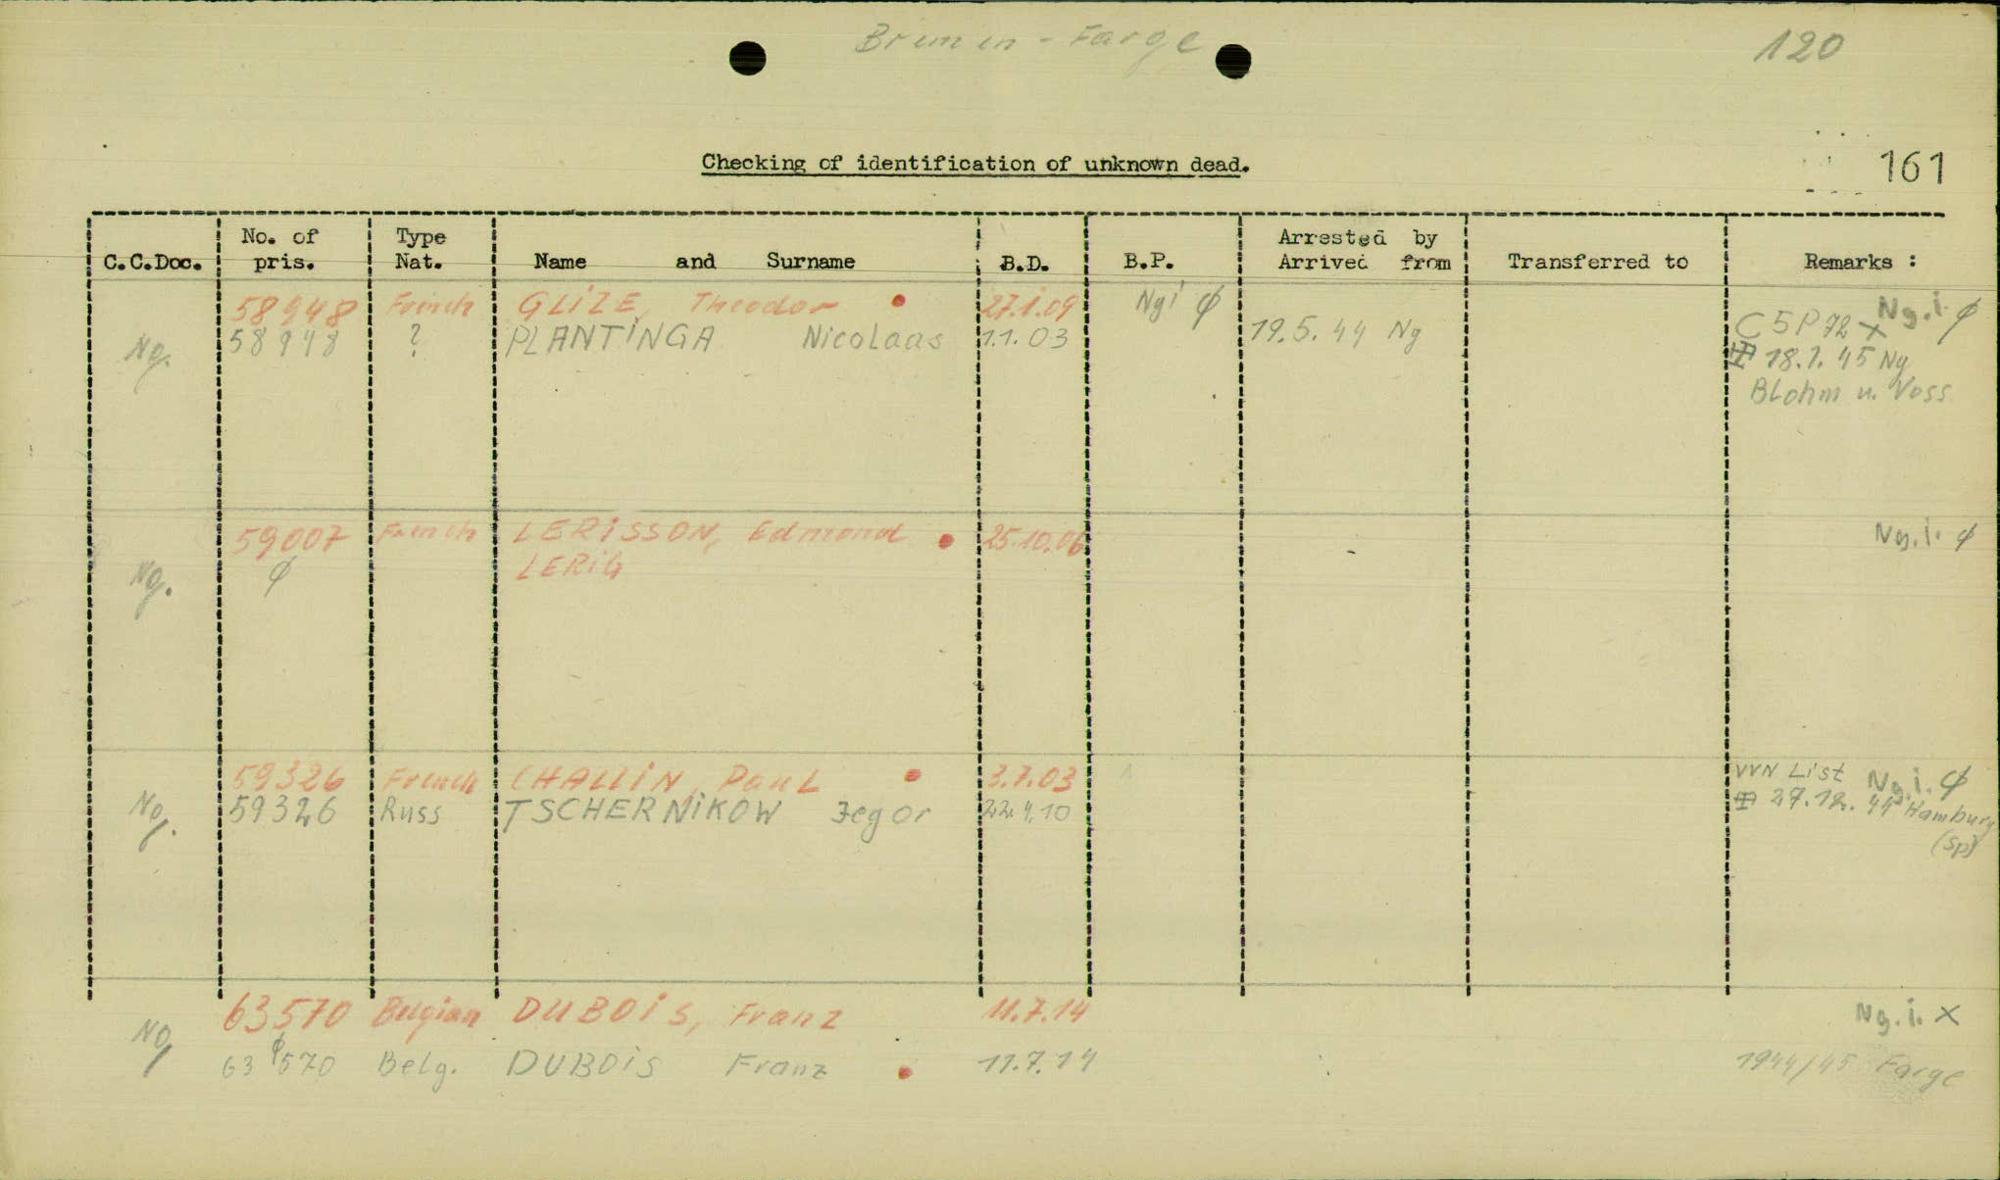 Bremen - Farge
120
Checking of identification of unknown dead.
161
C.C.Doc. No. of pris. Type Nat. Name and Surname B.D. B.P. Arrested by Arrived from Transferred to Remarks :
58948 French GLIZE, Theodor 27.1.09 Ngi ϕ Ng.i. ϕ
Ng. 58948 ? PLANTINGA Nicolaas 1.1.03 19.5.44 Ng C5P72 x
18.1.45 Ng
Blohm u. Voss
59007 French LERISSON, Edmond 25.10.06 Ng.i. ϕ
Ng. ϕ LERIG
59326 French CHALLIN, Paul 3.7.03 VVN List Ng.i. ϕ
Ng. 59326 Russ TSCHERNIKOW Jegor 22.4.10 27.12.44 Hamburg
(Sp)
63570 Belgian DUBOIS, Franz 11.7.14 Ng.i. x
Ng ϕ
63570 Belg. DUBOIS Franz 11.7.14 1944/45 Farge